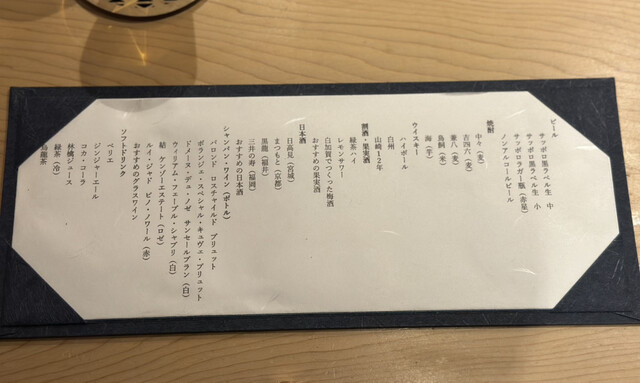 ビール
サッポロ黒ラベル生 中
サッポロ黒ラベル生 小
サッポロラガー瓶(赤星)
ノンアルコールビール
焼酎
中々(麦)
吉四六(麦)
兼八(麦)
鳥飼(米)
海(芋)
ウイスキー
ハイボール
白州
山崎12年
割酒・果実酒
緑茶ハイ
レモンサワー
白加賀でつくった梅酒
おすすめの果実酒
日本酒
日高見(宮城)
まつもと(京都)
黒龍(福井)
三井の寿(福岡)
おすすめの日本酒
シャンパン・ワイン(ボトル)
バロンド ロスチャイルド ブリュット
ボランジェ・スペシャル・キュヴェ・ブリュット
ドメーヌ・デュ・ノゼ サンセールブラン(白)
ウィリアム・フェーブル・シャブリ(白)
結 ケンゾーエステート(ロゼ)
ルイ・ジャド ピノ・ノワール(赤)
おすすめのグラスワイン
ソフトドリンク
ペリエ
ジンジャーエール
コカ・コーラ
林檎ジュース
緑茶(冷)
烏龍茶